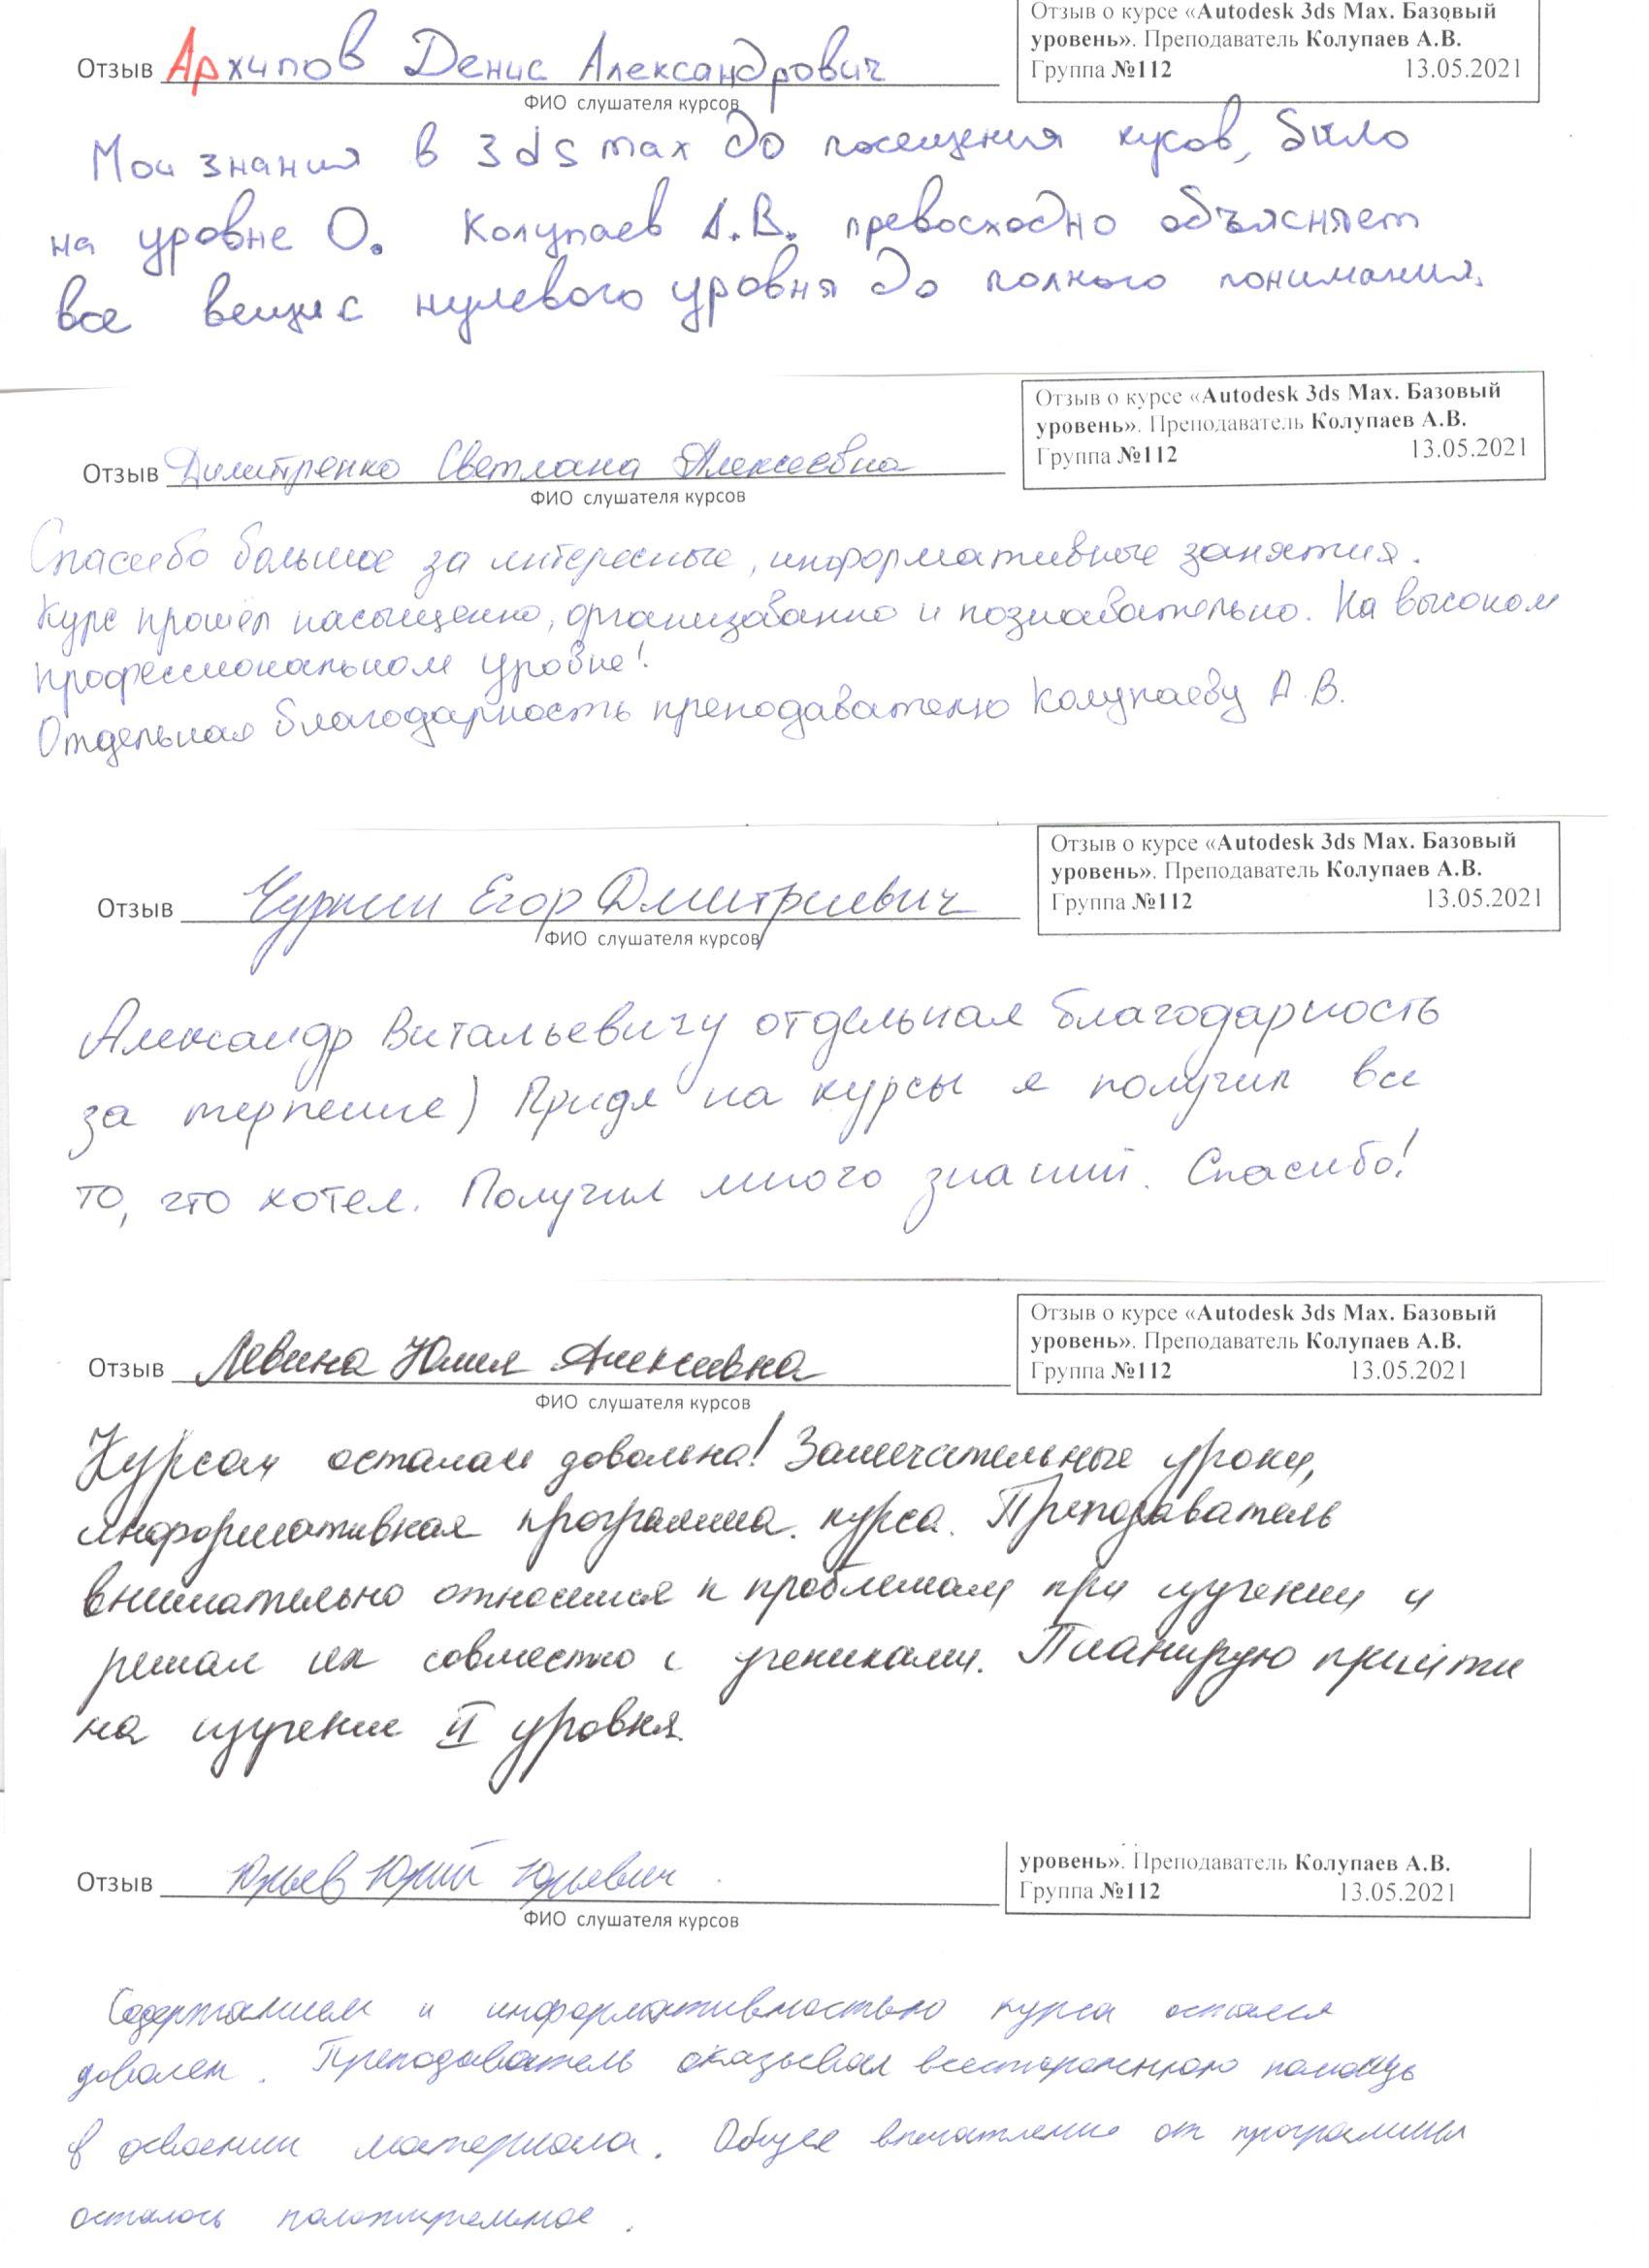 Отзыв о курсе «Autodesk 3ds Max. Базовый
уровень». Преподаватель Колупаев А.В.
Группа №112 13.05.2021
Отзыв Архипов Денис Александрович
ФИО слушателя курсов
Мои знания в 3ds max до посещения кусов, было
на уровне 0. Колупаев А.В. превосходно объясняет
все вещи с нулевого уровня до полного понимания.
Отзыв о курсе «Autodesk 3ds Max. Базовый
уровень». Преподаватель Колупаев А.В.
Группа №112 13.05.2021
Отзыв Димитренко Светлана Алексеевна
ФИО слушателя курсов
Спасибо большое за интересные, информативные занятия.
Курс прошёл насыщенно, организованно и познавательно. На высоком
профессиональном уровне!
Отдельная благодарность преподавателю Колупаеву А.В.
Отзыв о курсе «Autodesk 3ds Max. Базовый
уровень». Преподаватель Колупаев А.В.
Группа №112 13.05.2021
Отзыв Чуркин Егор Дмитриевич
ФИО слушателя курсов
Александр Витальевичу отдельная благодарность
за терпение) Придя на курсы я получил все
то, что хотел. Получил много знаний. Спасибо!
Отзыв о курсе «Autodesk 3ds Max. Базовый
уровень». Преподаватель Колупаев А.В.
Группа №112 13.05.2021
Отзыв Левина Юлия Алексеевна
ФИО слушателя курсов
Курсом осталась довольна! Замечательные уроки,
информативная программа курса. Преподаватель
внимательно относился к проблемам при изучении и
решал их совместно с учениками. Планирую прийти
на изучение II уровня.
уровень». Преподаватель Колупаев А.В.
Группа №112 13.05.2021
Отзыв Юрьев Юрий Юрьевич
ФИО слушателя курсов
Содержанием и информативностью курса остался
доволен. Преподаватель оказывал всестороннюю помощь
в освоении материала. Общее впечатление от программы
осталось положительное.